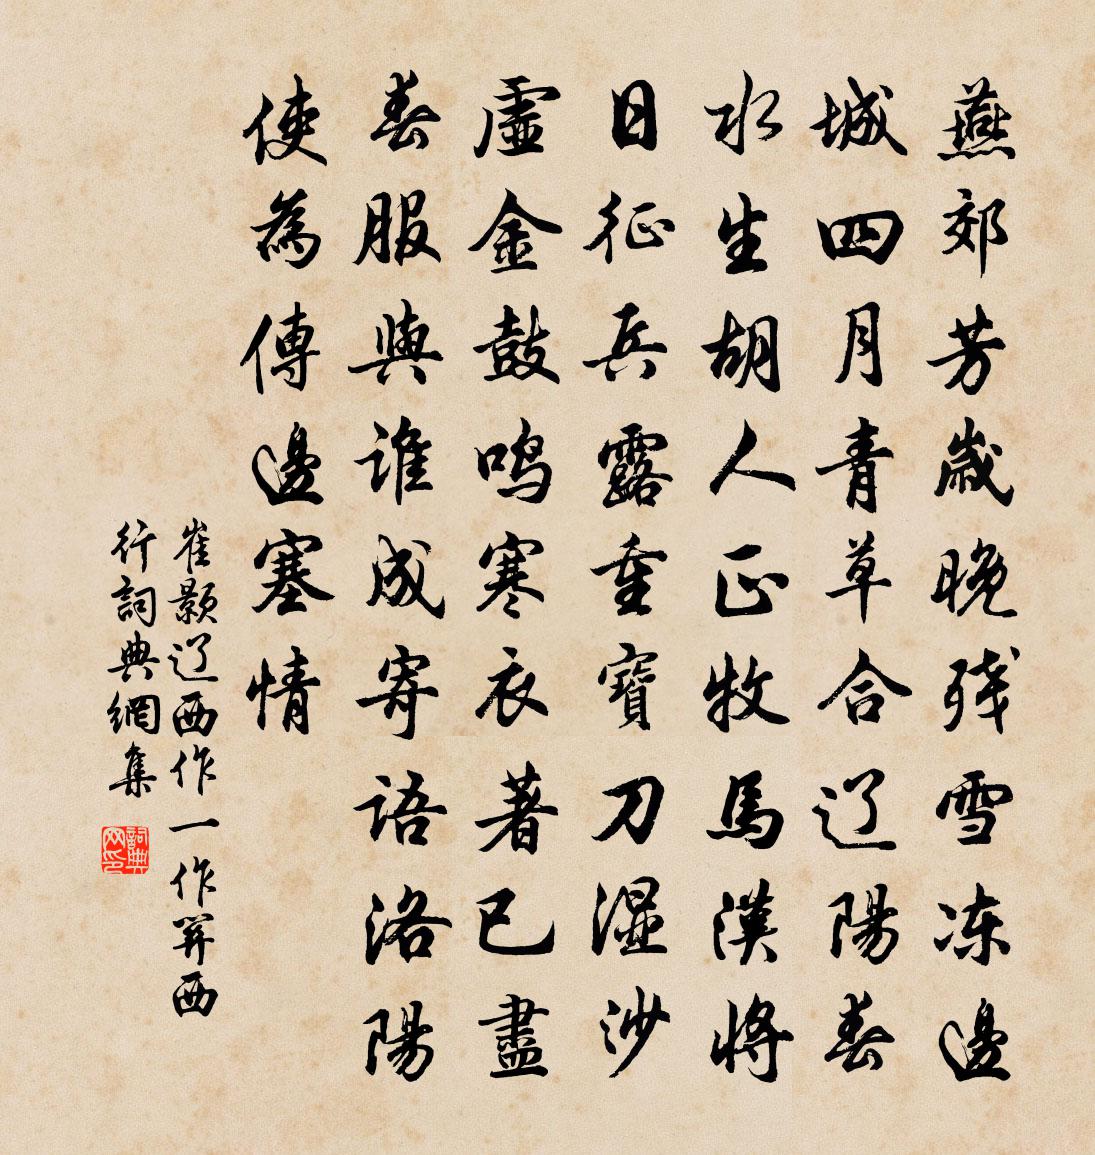 燕郊芳歲晚残雪冻邊
城四月青草合辽陽春
水生胡人正牧馬漢將
日征兵露重寶刀湿沙
虛金鼓鳴寒衣著已盡
春服與誰成寄語洛陽
使為傳邊塞情
崔颢辽西作一作關西
行詞典網集
詞典网印